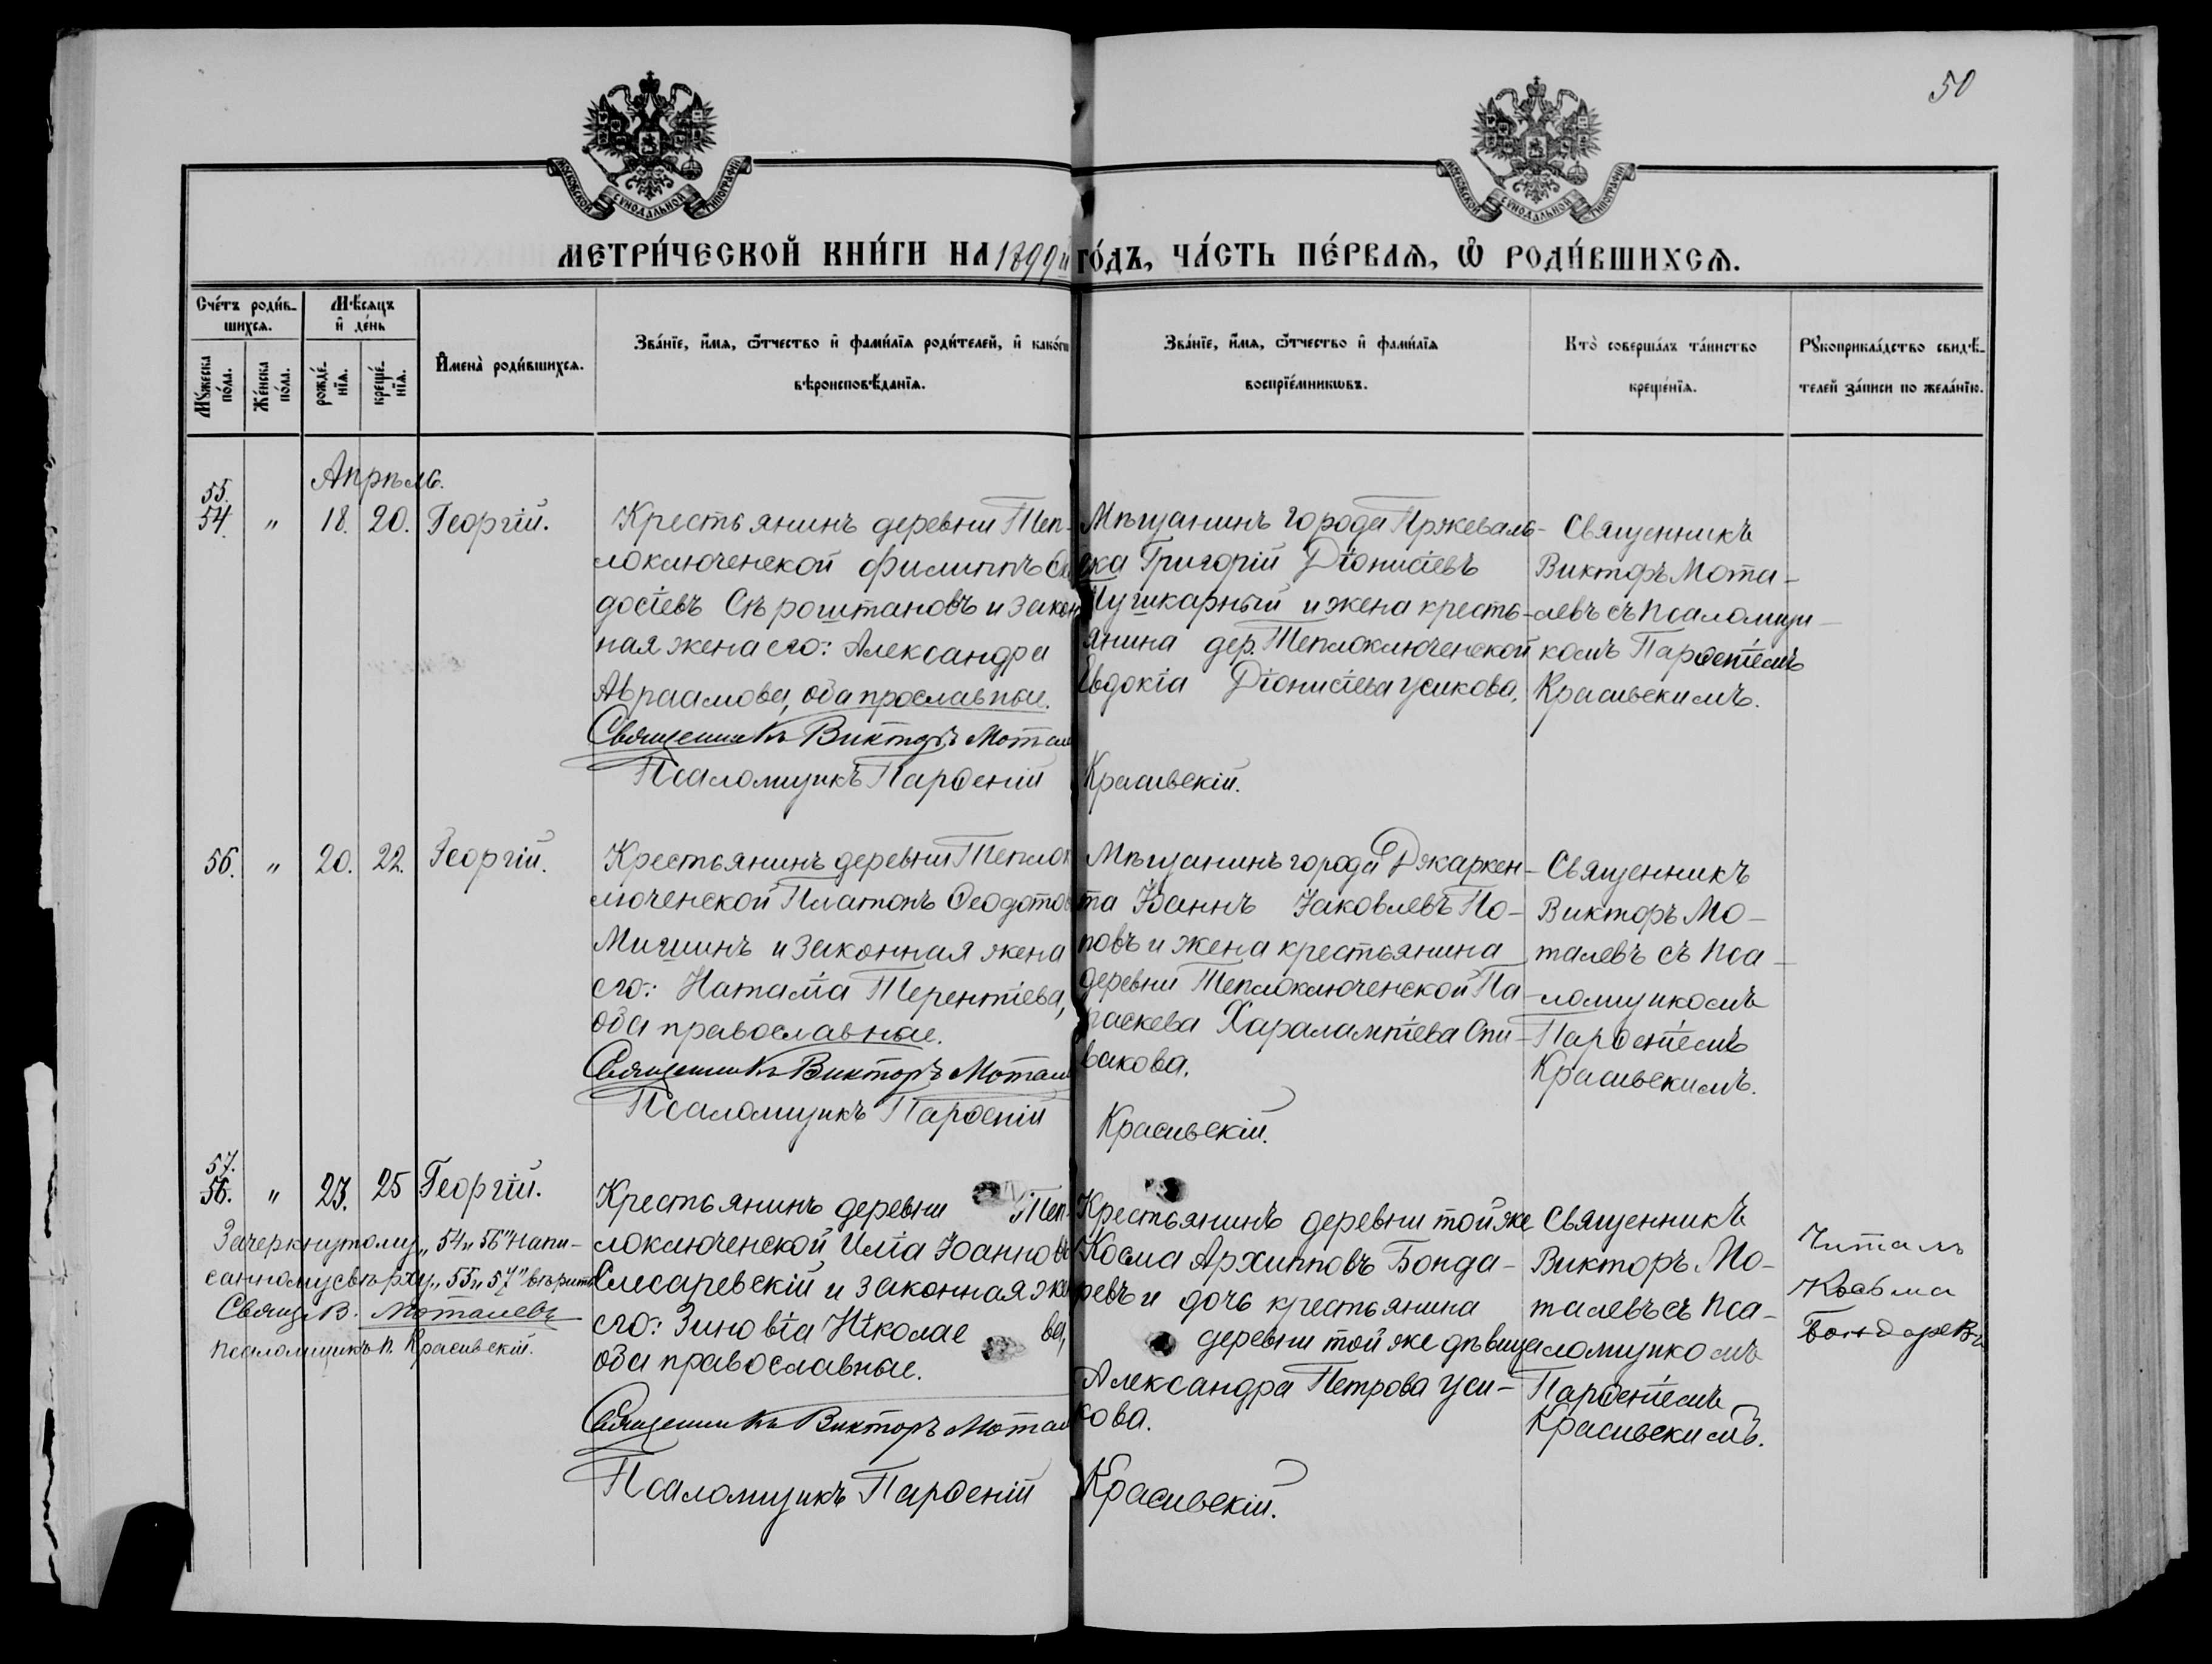 50
МОСКОВСКОЙ СѴНОДАЛЬНОЙ ТИПОГРАФІИ
МОСКОВСКОЙ СѴНОДАЛЬНОЙ ТИПОГРАФІИ
МЕТРИ́ЧЕСКОЙ КНИ́ГИ НА 1899й ГО́ДЪ, ЧА́СТЬ ПЕ́РВАѦ, Ѽ РОДИ́ВШИХСѦ.
Сче́тъ роди́в-
шихсѧ.
Мꙋ́жеска по́ла.
Же́нска по́ла.
Мѣ́сѧцъ
и҆ де́нь
рожде́-нїѧ.
креще́-нїѧ.
И҆мена̀ роди́вшихсѧ.
Зва́нїе, и҆́мѧ, ѻ҆́тчество и҆ фами́лїѧ роди́телей, и҆ како́гѡ
вѣроисповѣ́данїѧ.
Зва́нїе, и҆́мѧ, ѻ҆́тчество и҆ фами́лїѧ
воспрїе́мникѡвъ.
Кто̀ соверша́лъ та́инство
креще́нїѧ.
Рꙋкоприкла́дство свидѣ́-
телей за́писи по жела́нїю.
Апрѣль.
55.
54. " 18. 20. Георгій.
Крестьянинъ деревни Теп-
лоключенской Филиппъ
досіевъ Сѣроштановъ и закон
ная жена его: Александра
Авраамова, оба прославные.
Священникъ Викторъ Мотале
Псаломщикъ Парѳеній Красивскій.
Мѣщанинъ города Пржеваль-
ска Григорій Діонисіевъ
Пушкарный и жена кресть-
янина дер. Теплоключенской
Евдокія Діонисіева Усикова.
Священникъ
Викторъ Мота-
левъ съ псаломщи-
комъ Парѳеніемъ
Красивскимъ.
56. " 20. 22. Георгій.
Крестьянинъ деревни Теплок
люченской Платонъ Ѳеодотов
Мишинъ и законная жена
его: Наталія Терентіева,
оба православные.
Священникъ Викторъ Мотале
Псаломщикъ Парѳеній Красивскій.
Мѣщанинъ города Джаркен-
та Іоаннъ Іаковлевъ По-
повъ и жена крестьянина
деревни Теплоключенской Па-
раскева Харалампіева Спи-
вакова.
Священникъ
Викторъ Мо-
талевъ съ пса-
ломщикомъ
Парѳеніемъ
Красивскимъ.
57.
56. " 23. 25 Георгій.
Зачеркнутому „54 и 56" напи-
санному сверху „55 и 57" вѣрить
Свящ. В. Моталевъ
Псаломщикъ П. Красивскій.
Крестьянинъ деревни Теп-
лоключенской Илія Іоанновъ
Слесаревскій и законная жен
его: Зиновія Николае ва,
оба православные.
Священникъ Викторъ Мотале
Псаломщикъ Парѳеній Красивскій.
Крестьянинъ деревни той же
Косма Архипповъ Бонда-
ревъ и дочь крестьянина
деревни той же дѣвица
Александра Петрова Уси-
кова.
Священникъ
Викторъ Мо-
талевъ съ пса-
ломщикомъ
Парѳеніемъ
Красивскимъ.
Читалъ
Козьма
Бондаревъ